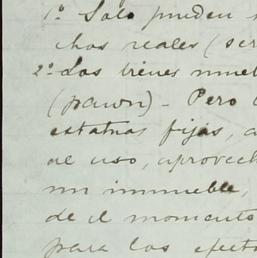 1º Solo pueden
chos reales (ser
2º Los bienes mueb
(pawn) - Pero
estatuas fijas, a
al uso, aprovech
un inmueble,
de el momento
para los efecto